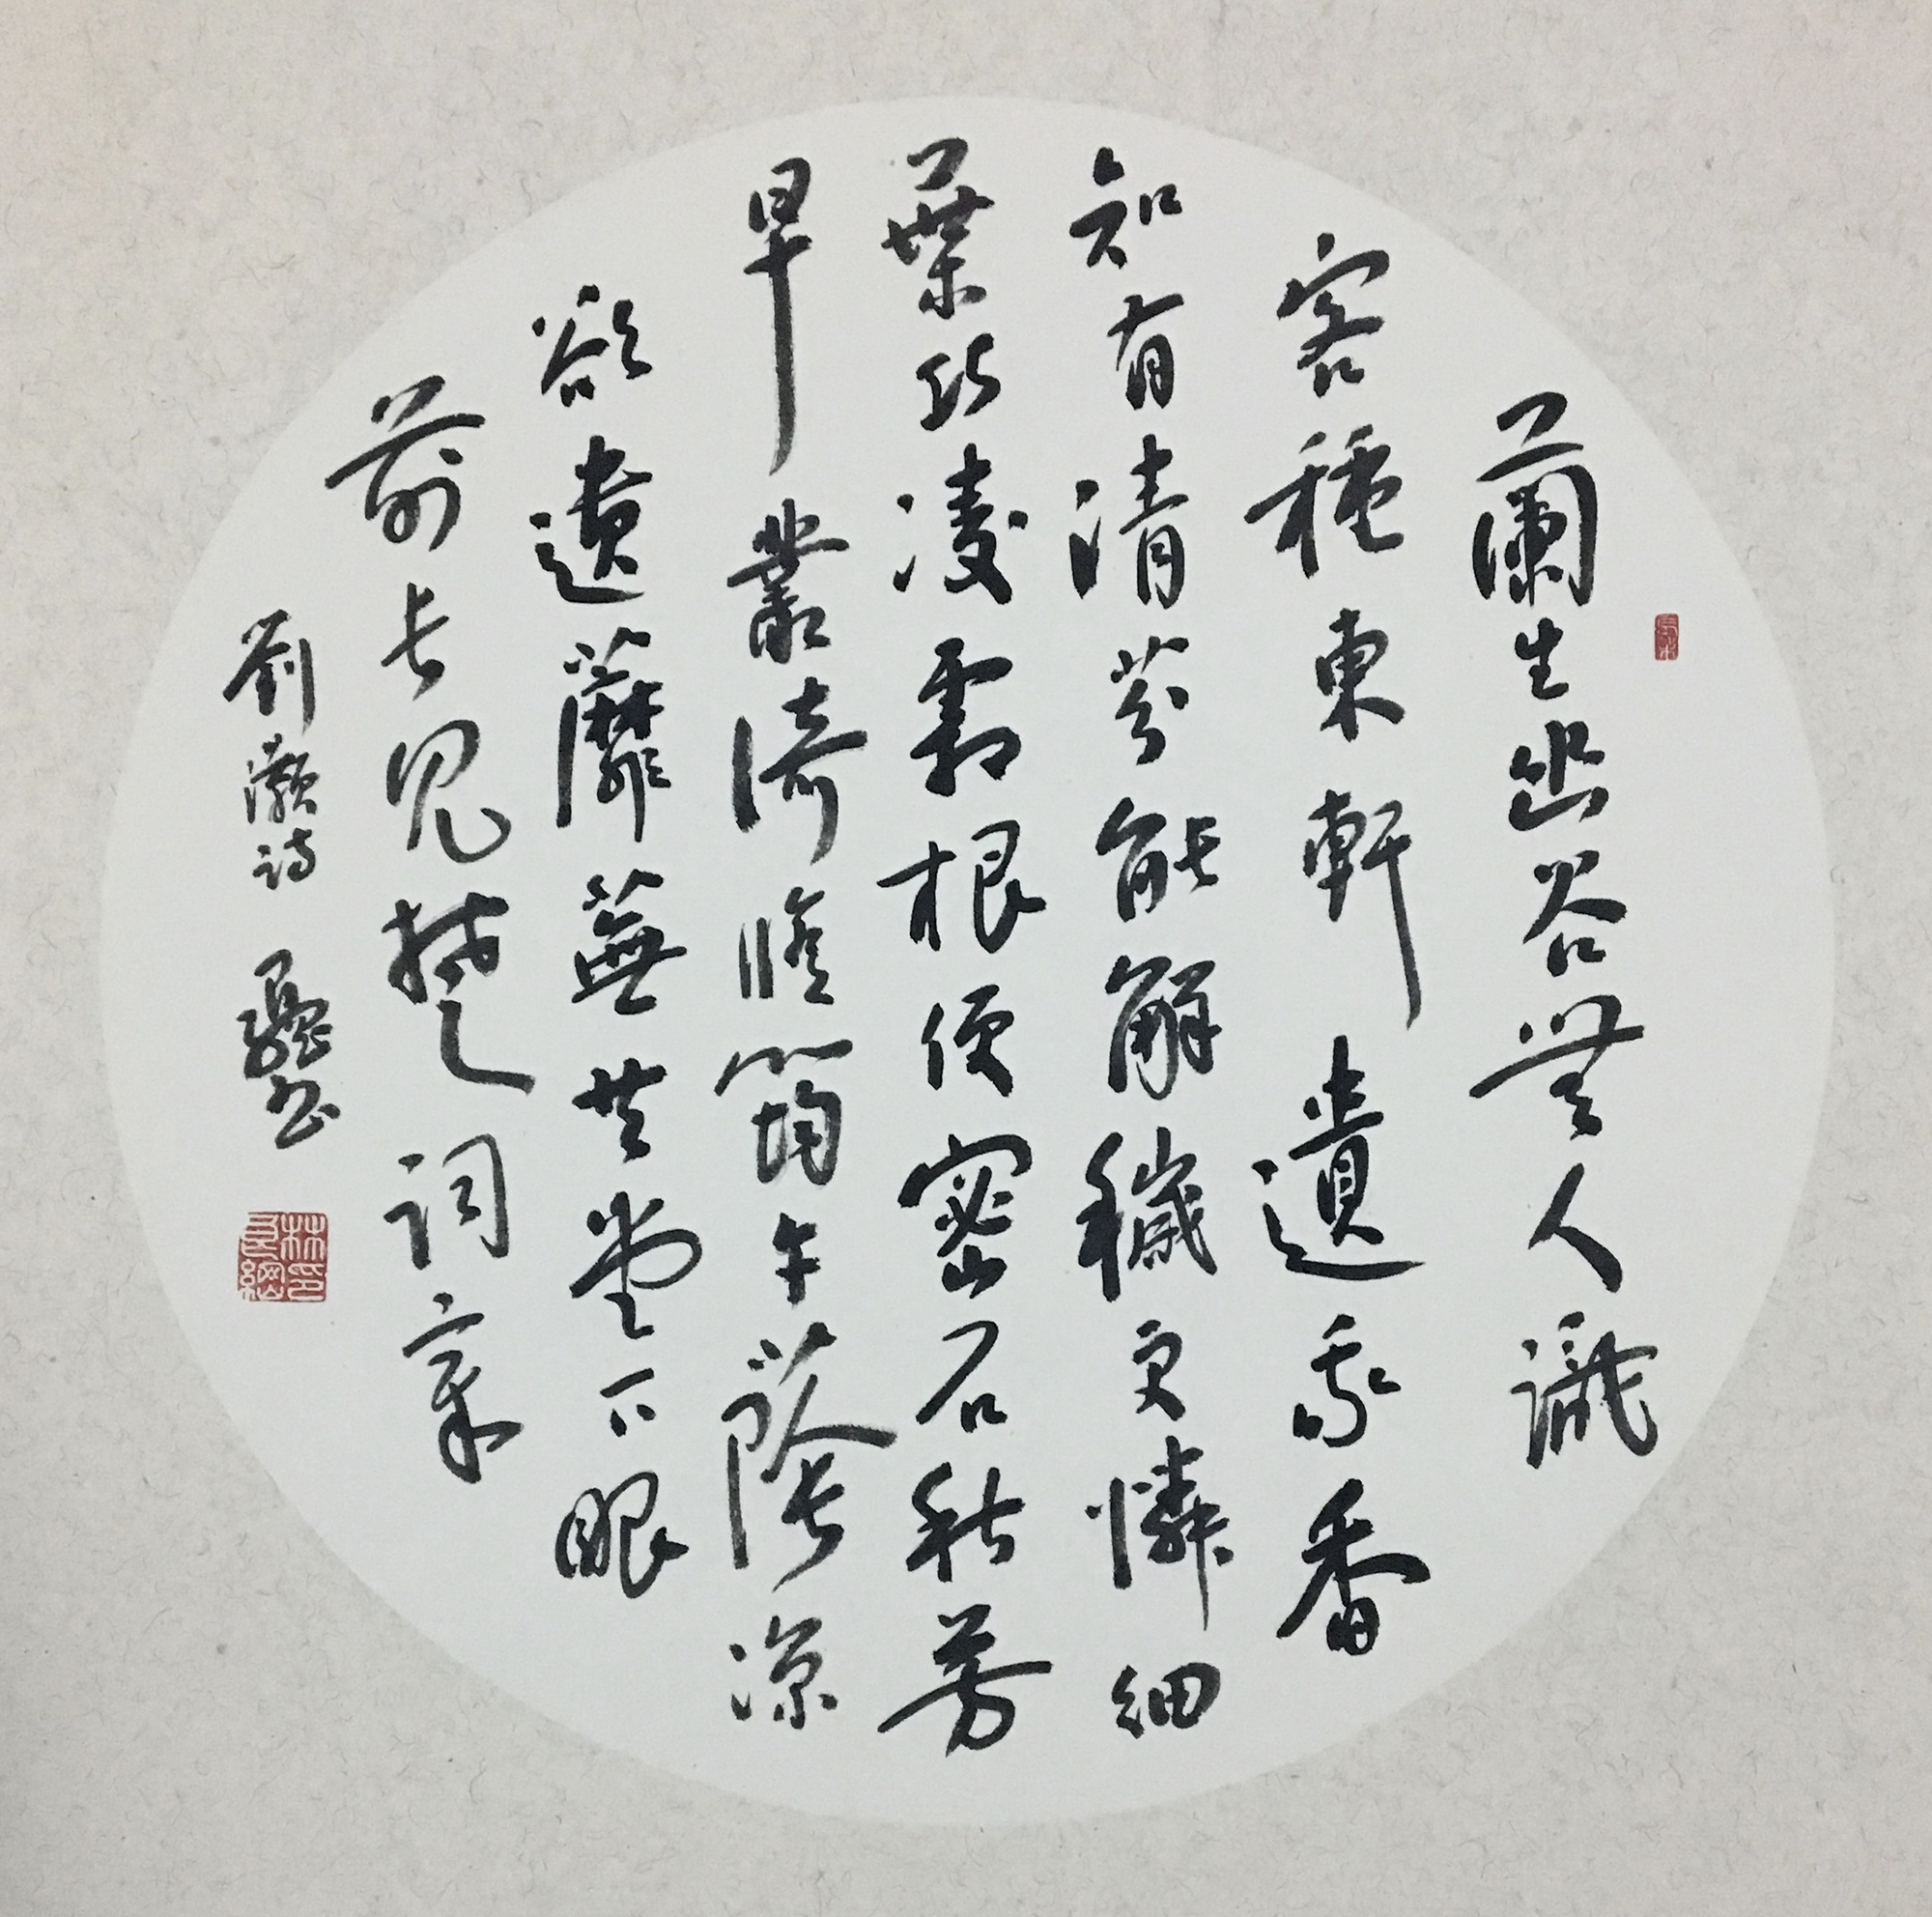 蘭生幽谷無人識
客種東軒遺我香
知有清芬能解穢更憐細
葉巧凌霜根便密石秋芳
早叢倚脩筠午蔭涼
欲遣蘼蕪共堂下眼
前長見楚詞章
劉灝詩 書
林印良綱